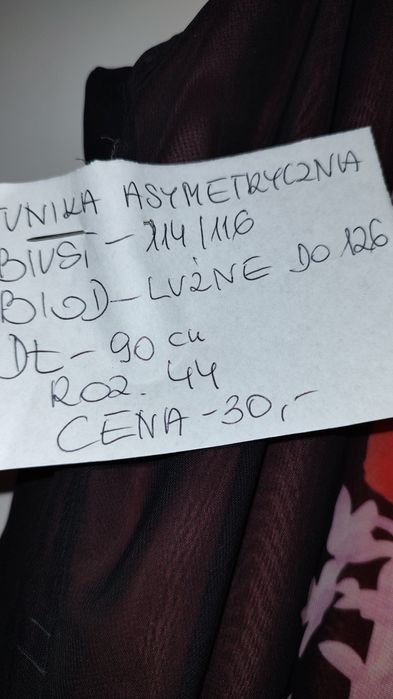 TUNIKA ASYMETRYCZNA
BIUST - 114/116
BIOD - LUŹNE DO 126
Dł - 90 cm
ROZ. 44
CENA - 30,-